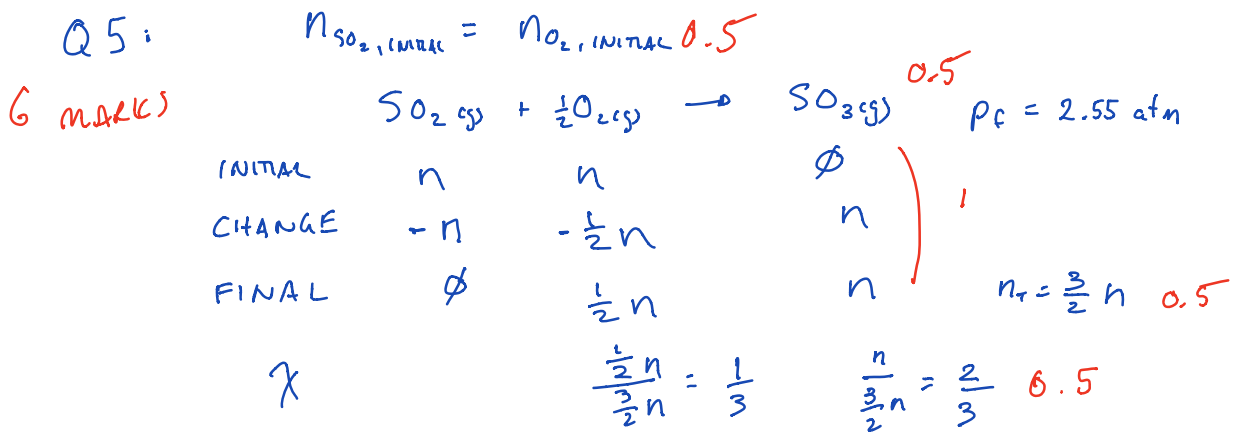 Q5: n_SO₂,INITIAL = n_O₂,INITIAL 0.5
6 MARKS SO₂(g) + ½O₂(g) → SO₃(g) 0.5 P_f = 2.55 atm
INITIAL n n ∅
CHANGE -n -½n n 1
FINAL ∅ ½n n n_T = 3/2 n 0.5
χ ½n / 3/2 n = 1/3 n / 3/2 n = 2/3 0.5